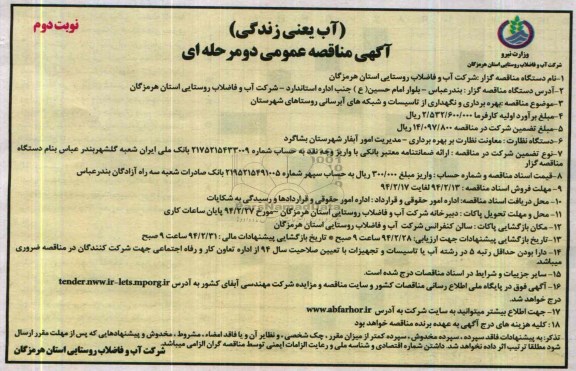 (آب یعنی زندگی)
نوبت دوم
آگهی مناقصه عمومی دو مرحله ای
وزارت نیرو
شرکت آب و فاضلاب روستایی استان هرمزگان
۱-نام دستگاه مناقصه گزار :شرکت آب و فاضلاب روستایی استان هرمزگان
۲-آدرس دستگاه مناقصه گزار : بندرعباس - بلوار امام حسین( ع ) جنب اداره استاندارد - شرکت آب و فاضلاب روستایی استان هرمزگان
۳-موضوع مناقصه :بهره برداری و نگهداری از تاسیسات و شبکه های آبرسانی روستاهای شهرستان
۴-مبلغ برآورد اولیه کارفرما ۲/۵۳۲/۶۰۰/۰۰۰ ریال
۵-مبلغ تضمین شرکت در مناقصه ۱۴/۰۹۷/۸۰۰ ریال
۶-دستگاه نظارت : معاونت نظارت بر بهره برداری - مدیریت امور آبفار شهرستان بشاگرد
۷-نوع تضمین شرکت در مناقصه : ارائه ضمانتنامه معتبر بانکی یا واریز وجه نقد به حساب شماره ۲۱۷۵۲۱۵۴۳۳۰۰۹ بانک ملی ایران شعبه گلشهربندر عباس بنام دستگاه
مناقصه گزار
۸-قیمت اسناد مناقصه و شماره حساب : واریز مبلغ ۳۰۰/۰۰۰ ریال به حساب سپهر شماره ۰۱۰۵۴۹۱۵۲۱۹۵ بانک صادرات شعبه سه راه آزادگان بندرعباس
۹-مهلت فروش اسناد مناقصه : ۹۴/۲/۱۳ لغایت ۹۴/۲/۱۷
۱۰-محل دریافت اسناد مناقصه: اداره امور حقوقی و قرارداد : اداره امور حقوقی و قراردادها و رسیدگی به شکایات
۱۱-محل و مهلت تحویل پاکات : دبیرخانه شرکت آب و فاضلاب روستایی استان هرمزگان -مورخ ۹۴/۲/۲۷ پایان ساعات کاری
۱۲- مکان بازگشایی پاکات : سالن کنفرانس شرکت آب و فاضلاب روستایی استان هرمزگان
۱۳- تاریخ بازگشایی پیشنهادات جهت ارزیابی: ۹۴/۲/۲۸ ساعت ۹ صبح * تاریخ بازگشایی پیشنهادات مالی : ۹۴/۲/۳۱ ساعت ۹ صبح
۱۴- دارا بودن حداقل رتبه ۵ در رشته آب یا تاسیسات و تجهیزات با تعیین صلاحیت سال ۹۴ از اداره تعاون کار و رفاه اجتماعی جهت شرکت کنندگان در مناقصه ضروری
میباشد.
۱۵- سایر جزییات و شرایط در اسناد مناقصات درج شده است.
۱۶- آگهی فوق در پایگاه ملی اطلاع رسانی مناقصات کشور و سایت مناقصه و مزایده شرکت مهندسی آبفای کشور به آدرس tender.nww.ir-iets.mporg.ir
درج خواهد شد.
۱۷- جهت اطلاع بیشتر میتوانید به سایت شرکت به آدرس www.abfarhor.ir
۱۸: کلیه هزینه های درج آگهی به عهده برنده مناقصه خواهد بود
تذکر: به پیشنهادات فاقد سپرده ، سپرده مخدوش ، سپرده کمتر از میزان مقرر ، چک شخصی ، و نظایر آن و یا فاقد امضاء ، مشروط ، مخدوش و پیشنهادهایی که پس از مهلت مقرر ارسال
شود مطلقا ترتیب اثر داده نخواهد شد. داشتن شماره اقتصادی و شناسه ملی و رعایت الزامات ایمنی توسط مناقصه گران الزامی میباشد.
شرکت آب و فاضلاب روستایی استان هرمزگان